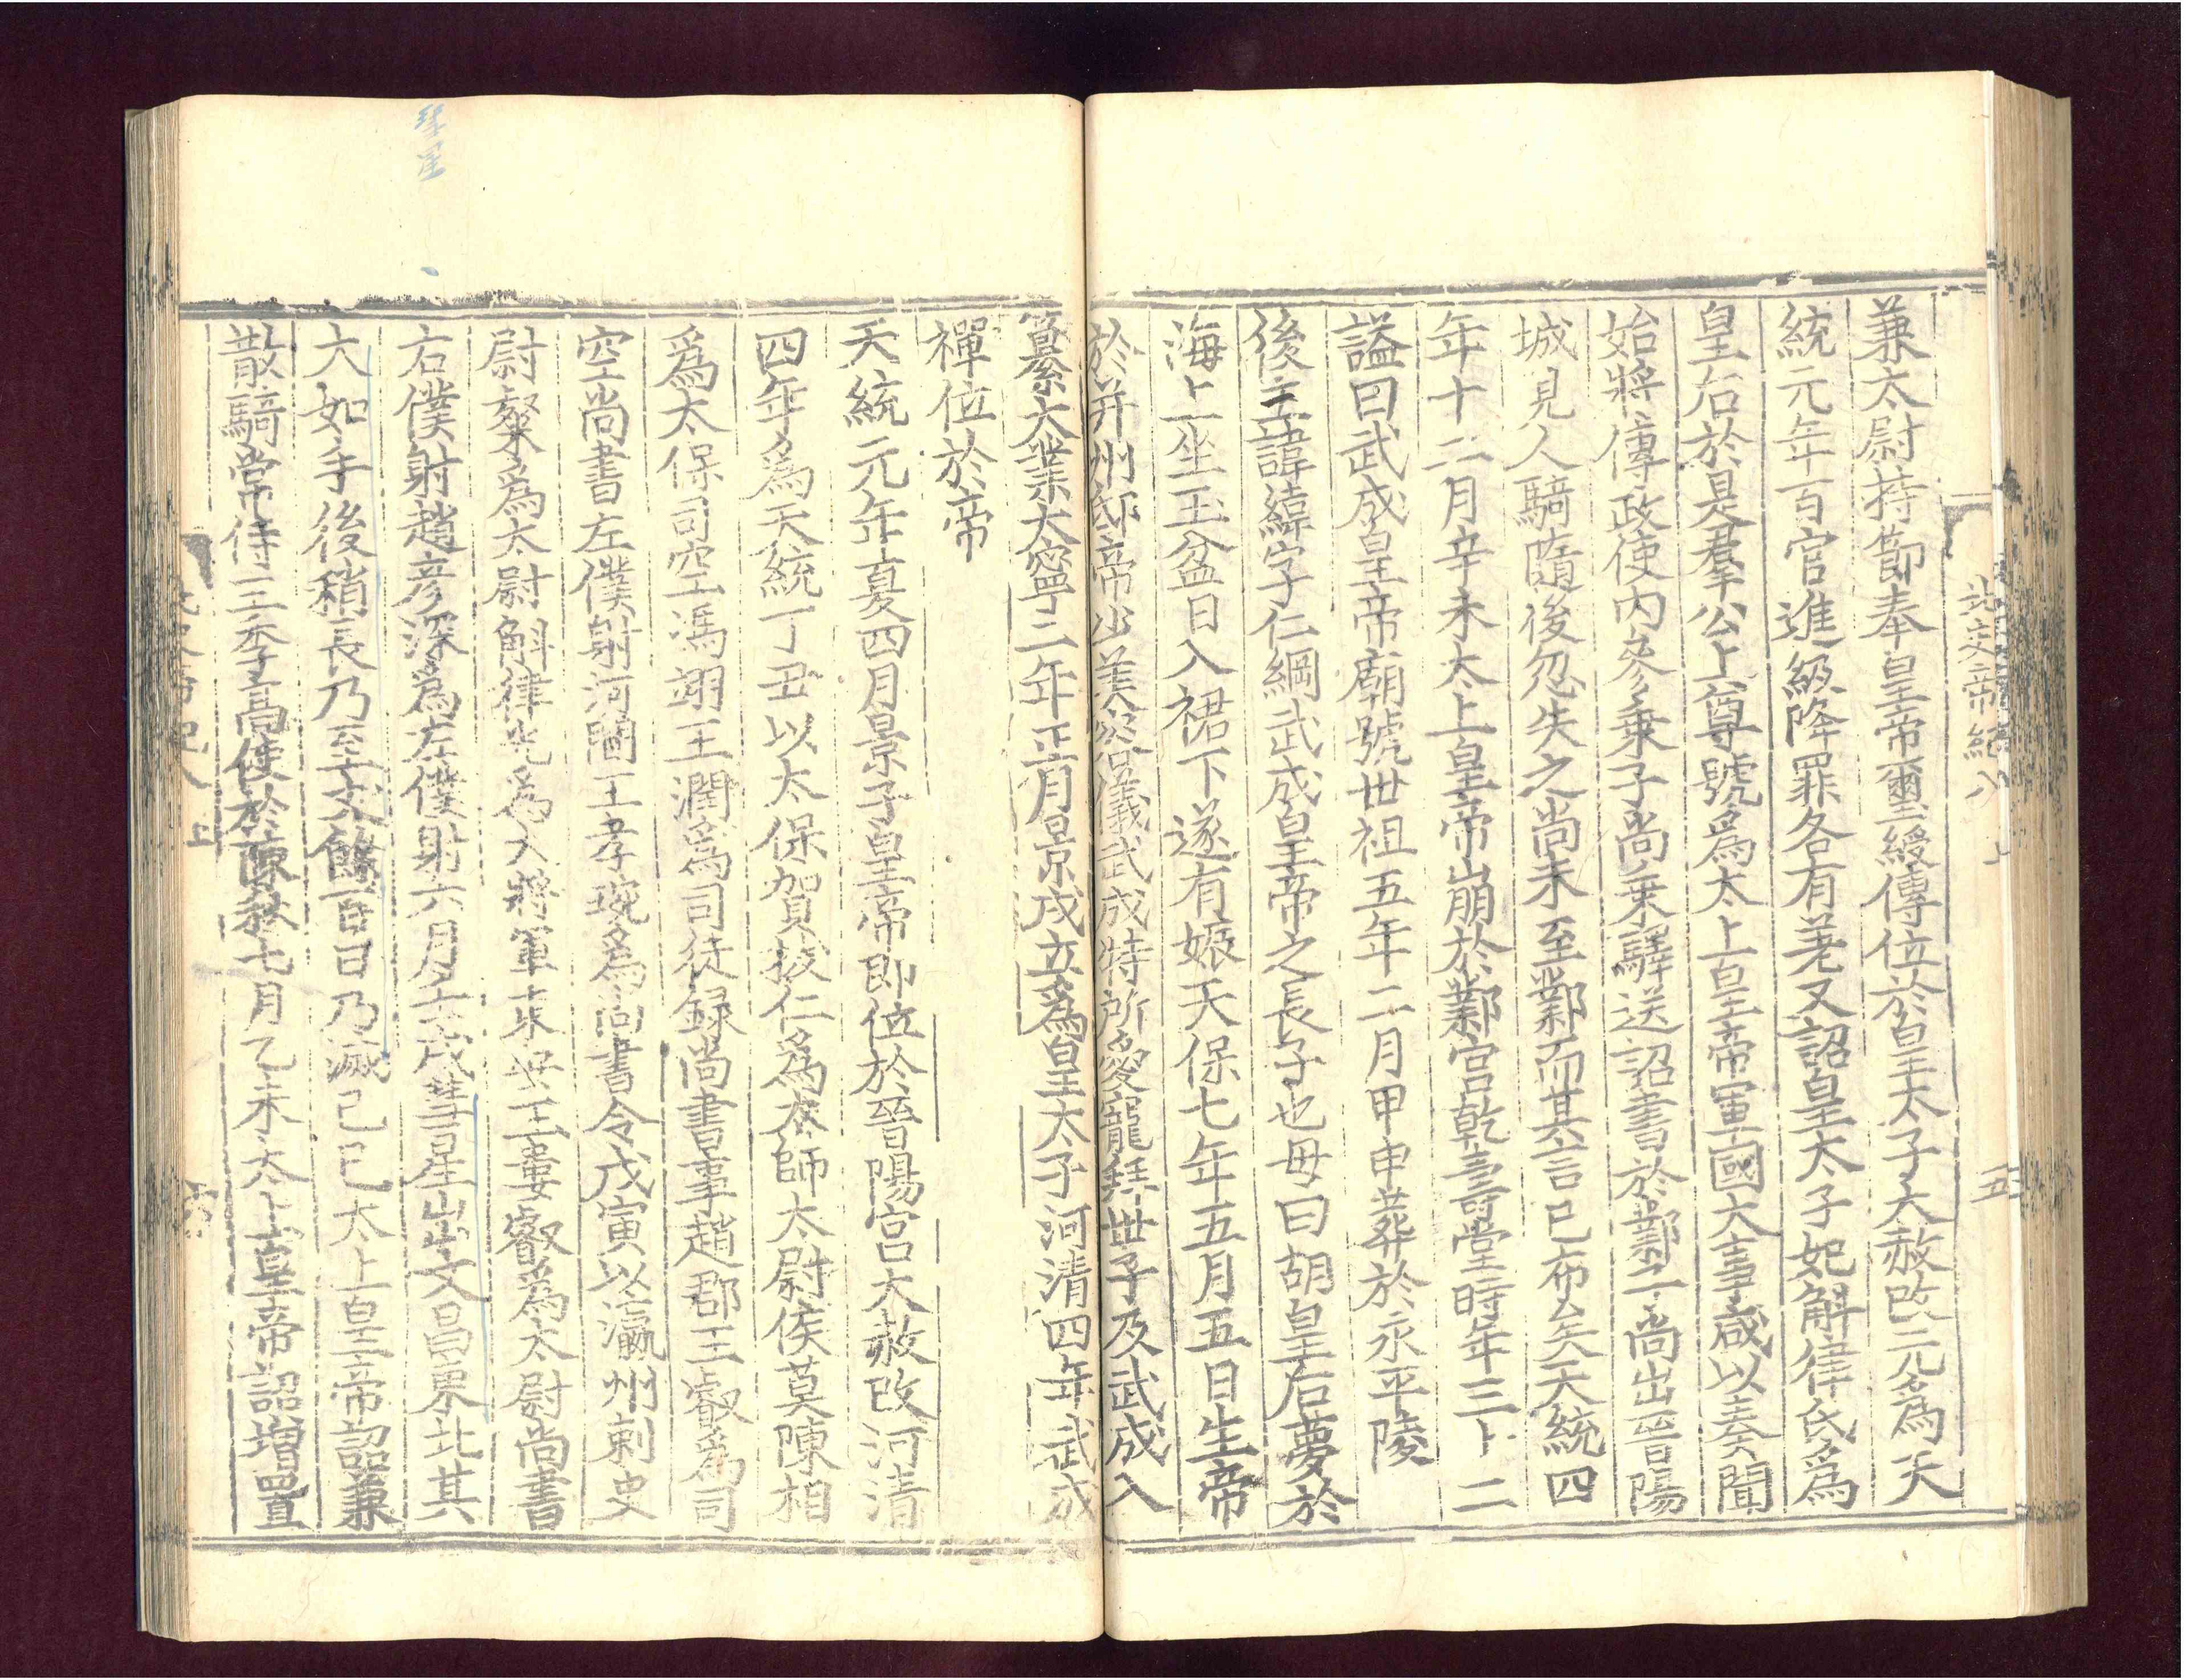 北史帝紀八 上
五
兼太尉持節奉皇帝璽綬傳位於皇太子大赦改元爲天
統元年百官進級降罪各有差又詔皇太子妃斛律氏爲
皇后於是羣公上尊號爲太上皇帝軍國大事咸以奏聞
始將傳政使内參乗子尚乗驛送詔書於鄴子尚出晉陽
城見人騎隨後忽失之尚未至鄴而其言已布矣天統四
年十二月辛未太上皇帝崩於鄴宫乾壽堂時年三十二
謚曰武成皇帝廟號世祖五年二月甲申葬於永平陵
後主諱緯字仁綱武成皇帝之長子也母曰胡皇后夢於
海上坐玉盆日入裙下遂有娠天保七年五月五日生帝
於并州邸帝少美容儀武成特所愛寵拜世子及武成入
纂大業大寧二年正月景戌立爲皇太子河清四年武成
禪位於帝
天統元年夏四月景子皇帝即位於晉陽宫大赦改河清
四年爲天統丁丑以太保賀拔仁爲太師太尉侯莫陳相
爲太保司空馮翊王潤爲司徒録尚書事趙郡王叡爲司
空尚書左僕射河閒王孝琬爲尚書令戊寅以瀛州刺史
尉粲爲太尉斛律光爲大將軍東安王婁叡爲太尉尚書
右僕射趙彦深爲左僕射六月壬戌彗星出文昌東北其
大如手後稍長乃至丈餘百日乃滅己巳太上皇帝詔兼
散騎常侍王季高使於陳秋七月乙未太上皇帝詔增置
彗星
上
六